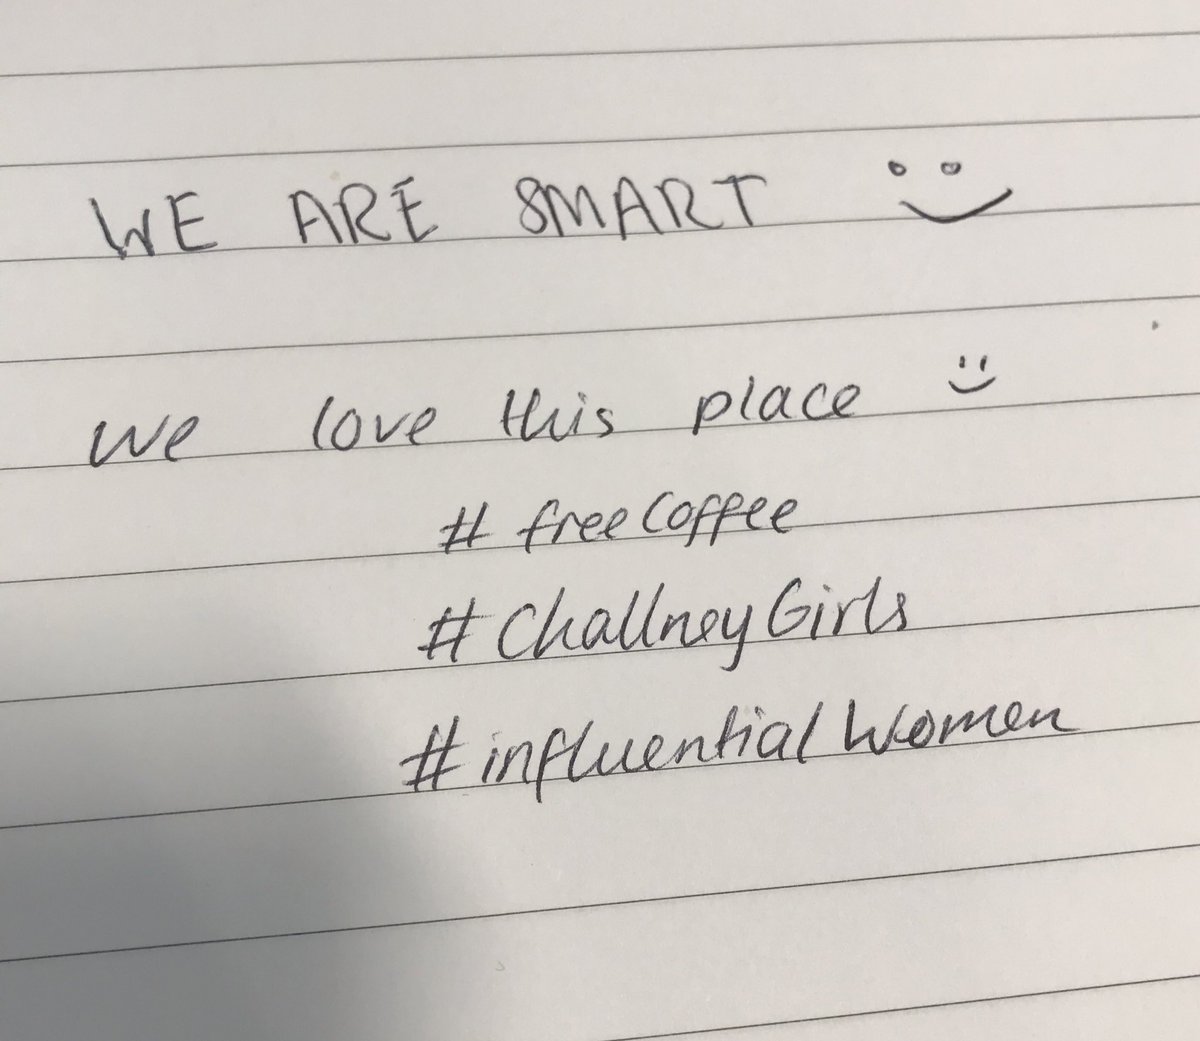 WE ARE SMART
we love this place
# freeCoffee
# ChallneyGirls
#influentialWomen